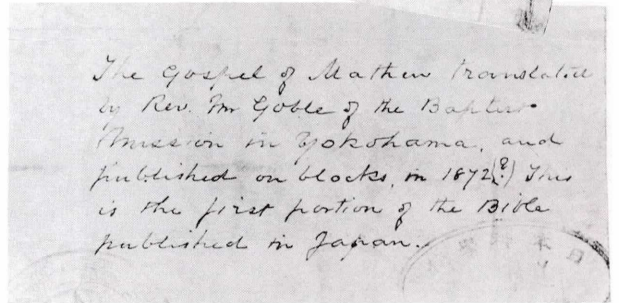 The Gospel of Mathew translated
by Rev. Mr Goble of the Baptist
Mission in Yokohama, and
published on blocks, in 1872(?) This
is the first portion of the Bible
published in Japan.